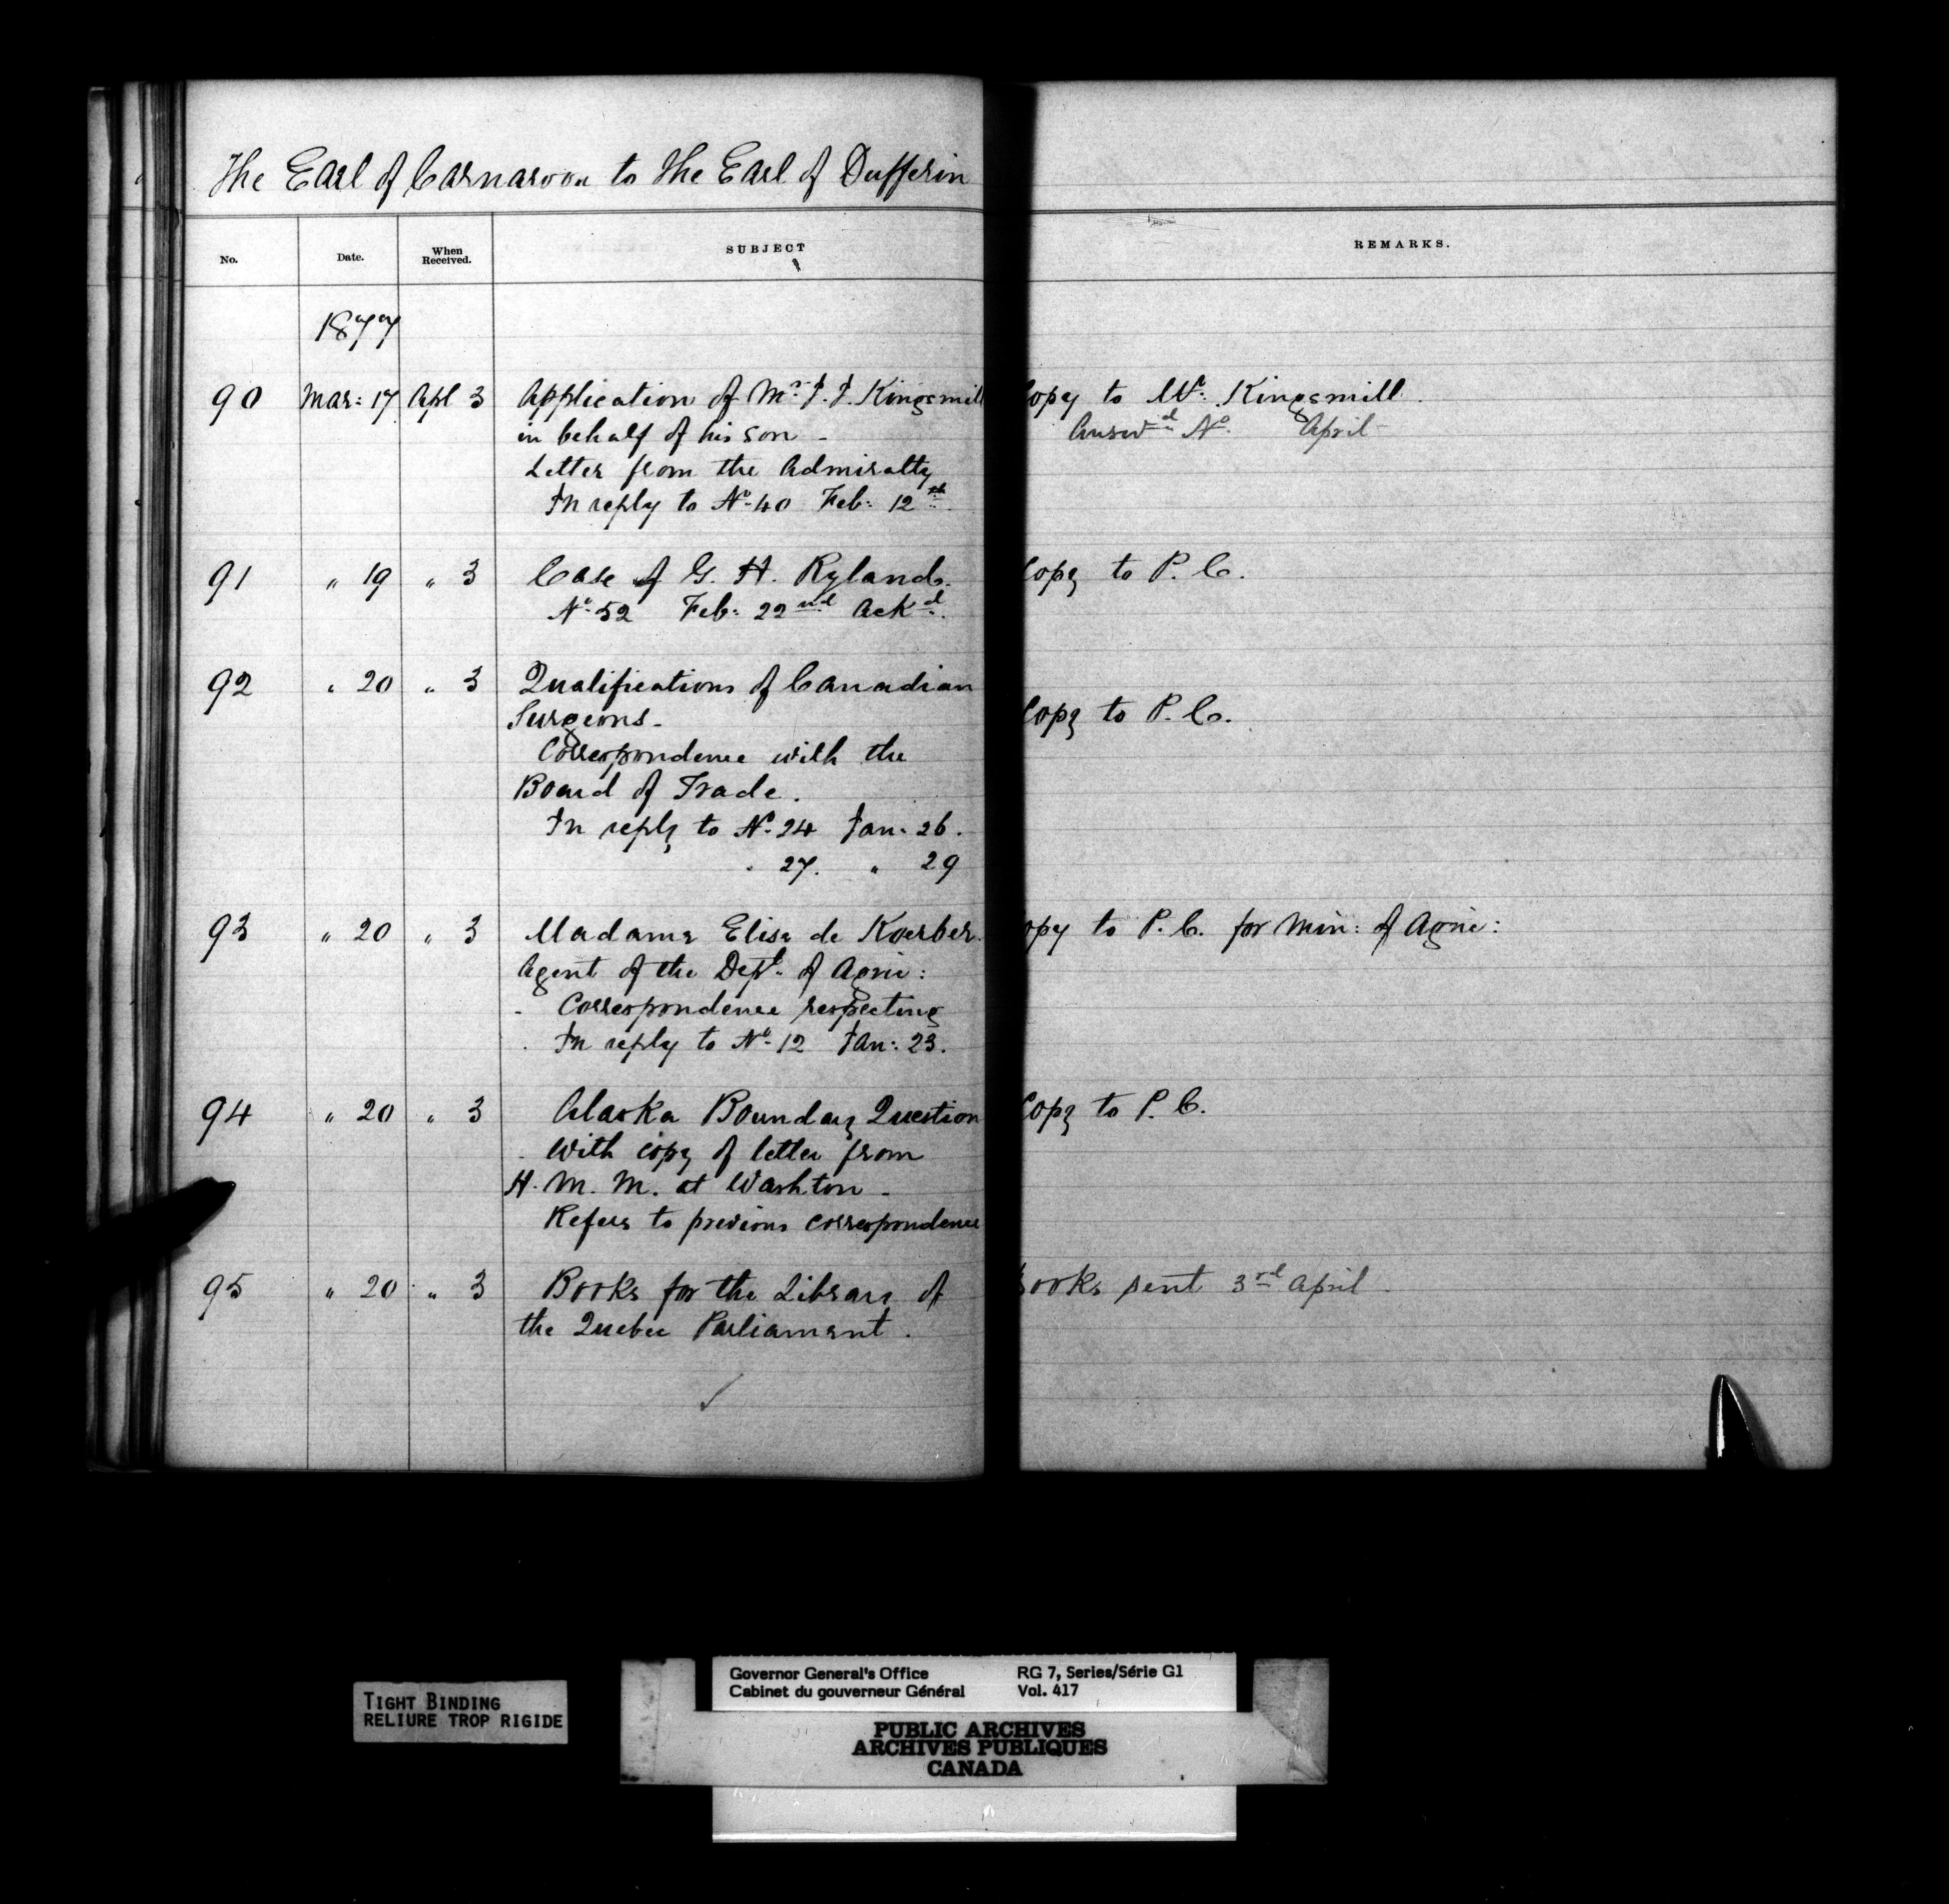 The Earl of Carnarvon to the Earl of Dufferin
No. Date. When Received. SUBJECT REMARKS.
1877
90 Mar: 17 Apl 3 Application of Mr. J. J. Kingsmill opy to Mr. Kingsmill.
in behalf of his son - Answd No. April -
Letter from the Admiralty
In reply to No. 40 Feb: 12th.
91 " 19 " 3 Case of G. H. Ryland. Copy to P. C.
No. 52 Feb: 22nd Ackd.
92 " 20 " 3 Qualifications of Canadian
Surgeons - Copy to P. C.
Correspondence with the
Board of Trade.
In reply to No. 24 Jan. 26.
" 27. " 29
93 " 20 " 3 Madame Elise de Koerber. opy to P. C. for Min: of Agric:
Agent of the Dept. of Agric:
- Correspondence respecting
. In reply to No. 12 Jan: 23.
94 " 20 " 3 Alaska Boundary Question Copy to P. C.
. With copy of letter from
H. M. M. at Washton -
Refers to previous correspondence
95 " 20 " 3 Books for the Library of ooks sent 3rd April.
the Quebec Parliament.
TIGHT BINDING
RELIURE TROP RIGIDE
Governor General's Office RG 7, Series/Série G1
Cabinet du gouverneur Général Vol. 417
PUBLIC ARCHIVES
ARCHIVES PUBLIQUES
CANADA